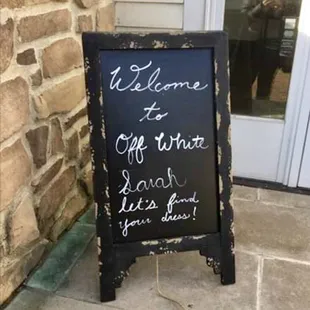 Welcome
to
Off White
Sarah
let's find
your dress!